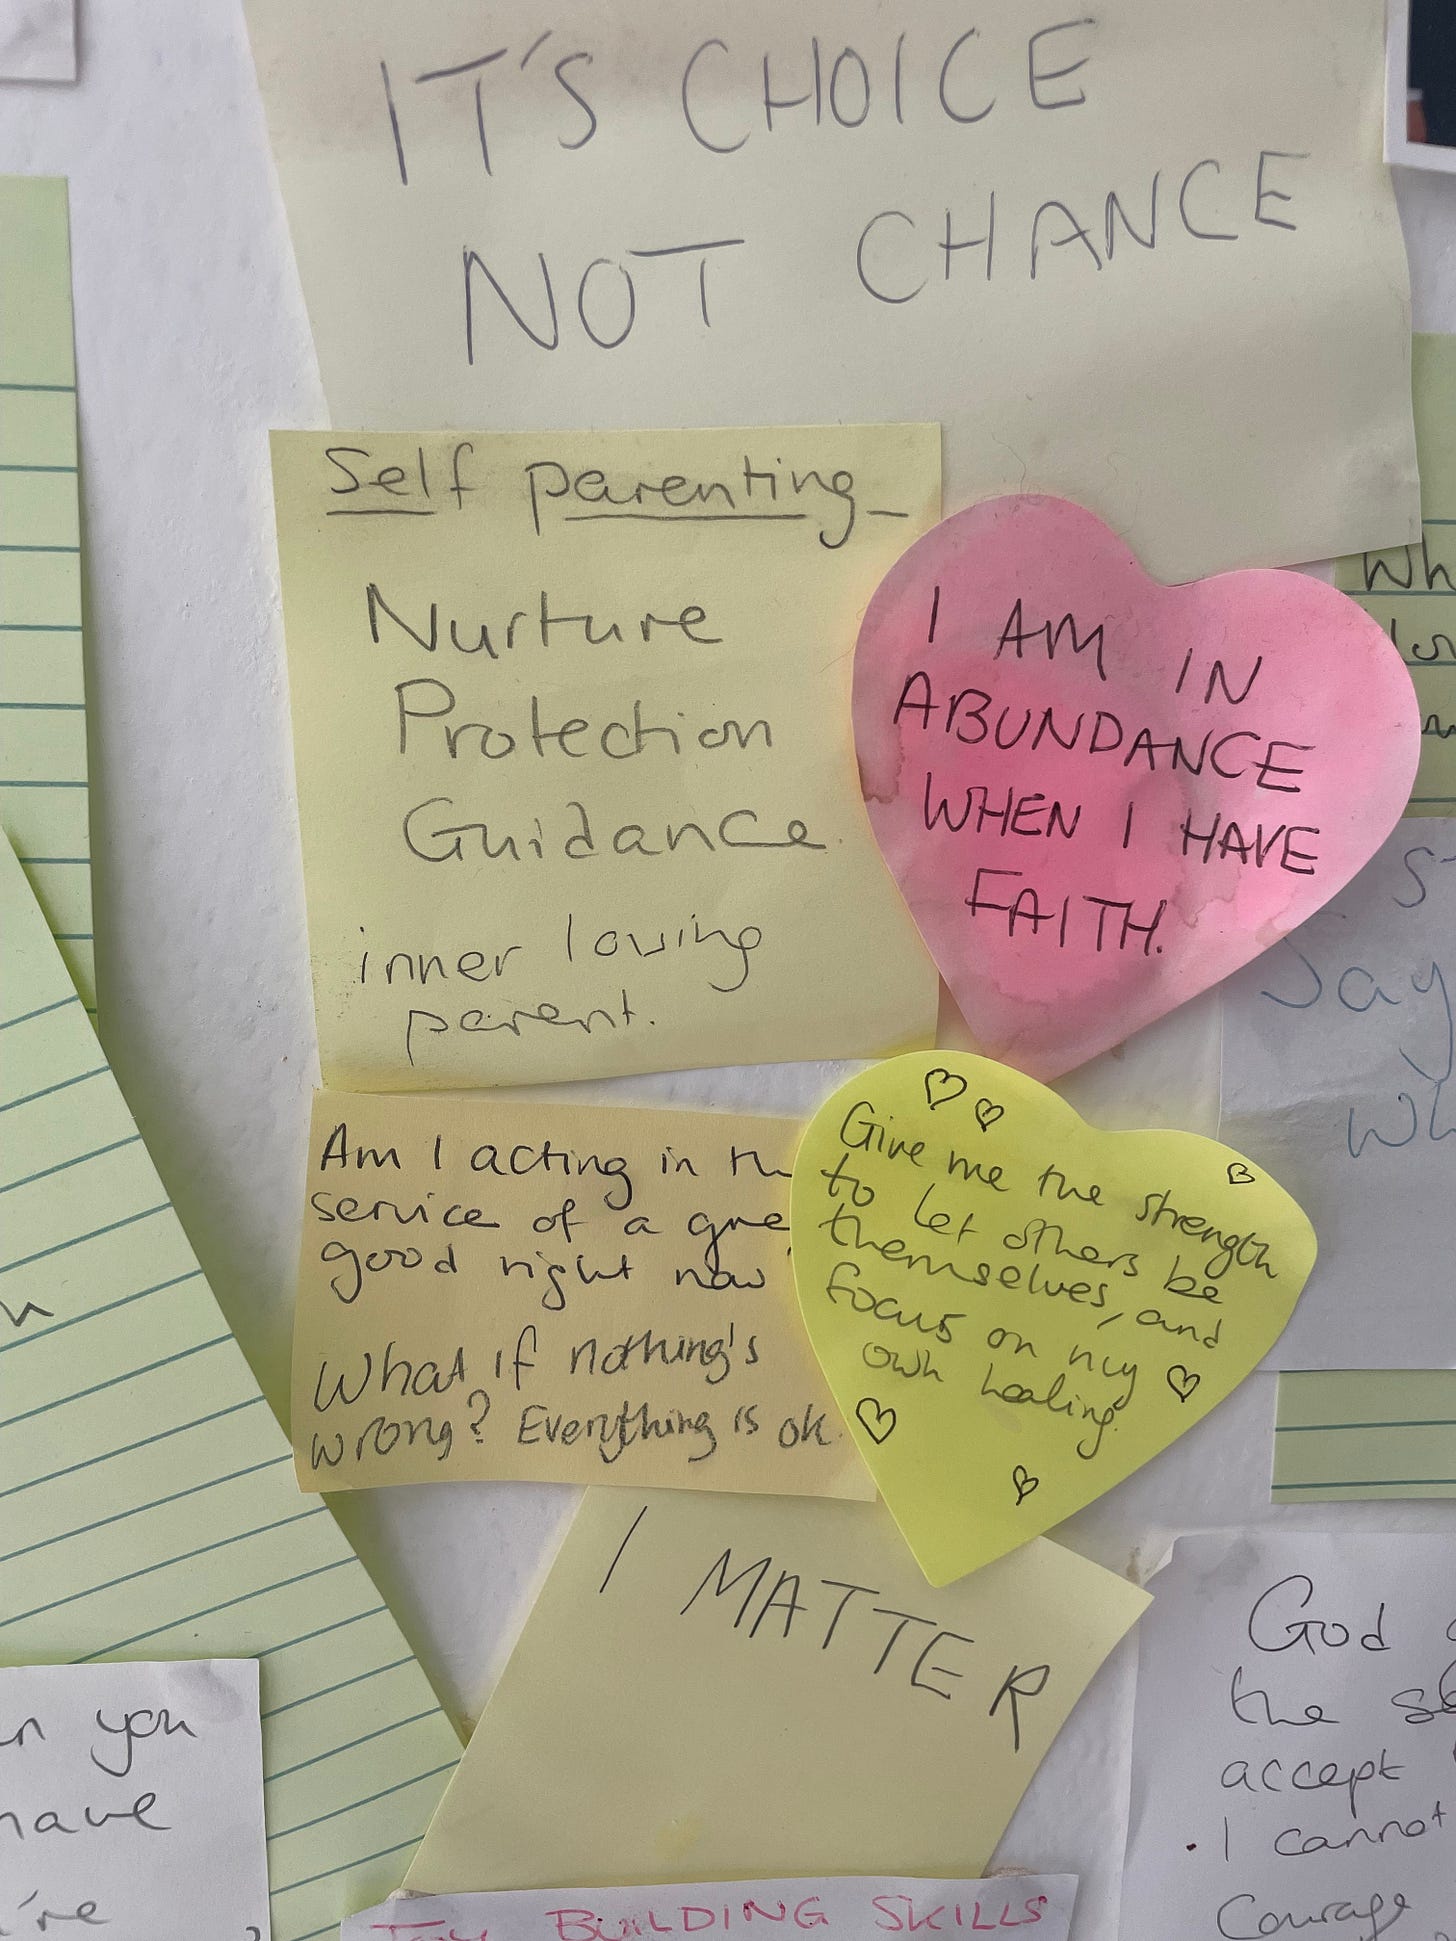 IT'S CHOICE
NOT CHANCE
Self parenting
Nurture
Protection
Guidance.
inner loving
parent.
I AM IN
ABUNDANCE
WHEN I HAVE
FAITH.
Am I acting in
service of a
good right now
What if nothing's
wrong? Everything is ok.
Give me the strength
to let others be
themselves, and
focus on my
own healing.
I MATTER
God
the
accept
I cannot
Courage
you
have
BUILDING SKILLS